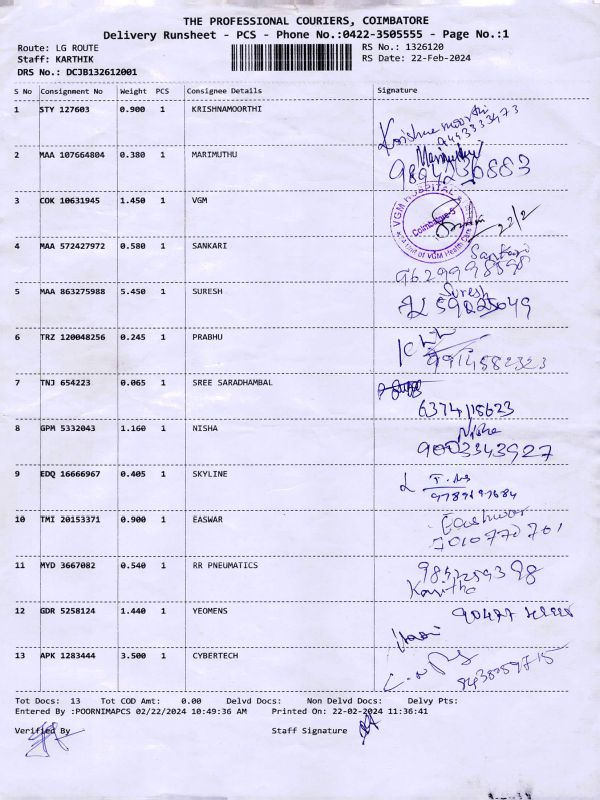 THE PROFESSIONAL COURIERS, COIMBATORE
Delivery Runsheet - PCS - Phone No.:0422-3505555 - Page No.:1
Route: LG ROUTE RS No.: 1326120
Staff: KARTHIK RS Date: 22-Feb-2024
DRS No.: DCJB132612001
S No Consignment No Weight PCS Consignee Details Signature
1 STY 127603 0.900 1 KRISHNAMOORTHI Krishnamoorthi
2 MAA 107664804 0.380 1 MARIMUTHU Marimuthu
9894230883
3 COK 10631945 1.450 1 VGM VGM HOSPITAL Coimbatore-5 22/2
4 MAA 572427972 0.580 1 SANKARI Sankari
5 MAA 863275988 5.450 1 SURESH Suresh
6 TRZ 120048256 0.245 1 PRABHU
9914582323
7 TNJ 654223 0.065 1 SREE SARADHAMBAL
6374118623
8 GPM 5332043 1.160 1 NISHA Nisha
9003343927
9 EDQ 16666967 0.405 1 SKYLINE
10 TMI 20153371 0.900 1 EASWAR Easwar
7010770701
11 MYD 3667082 0.540 1 RR PNEUMATICS
12 GDR 5258124 1.440 1 YEOMENS
13 APK 1283444 3.500 1 CYBERTECH
Tot Docs: 13 Tot COD Amt: 0.00 Delvd Docs: Non Delvd Docs: Delvy Pts:
Entered By :POORNIMAPCS 02/22/2024 10:49:36 AM Printed On: 22-02-2024 11:36:41
Verified By Staff Signature